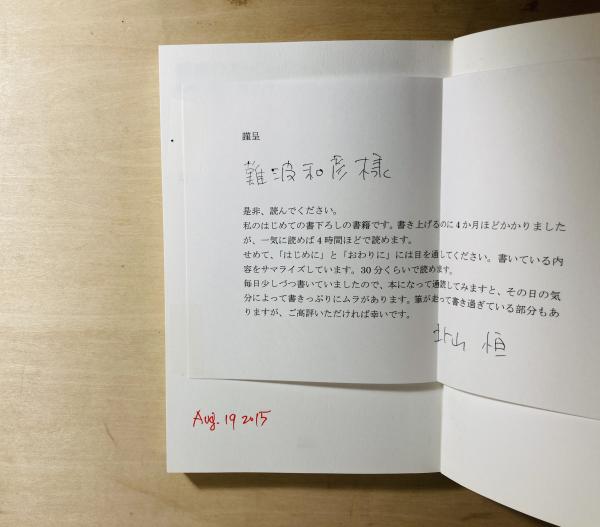 謹呈
難波和彦様
是非、読んでください。
私のはじめての書下ろしの書籍です。書き上げるのに4か月ほどかかりました
が、一気に読めば4時間ほどで読めます。
せめて、「はじめに」と「おわりに」には目を通してください。書いている内
容をサマライズしています。30分くらいで読めます。
毎日少しづつ書いていましたので、本になって通読してみますと、その日の気
分によって書きっぷりにムラがあります。筆が走って書き過ぎている部分もあ
りますが、ご高評いただければ幸いです。
北山 恒
Aug. 19 2015